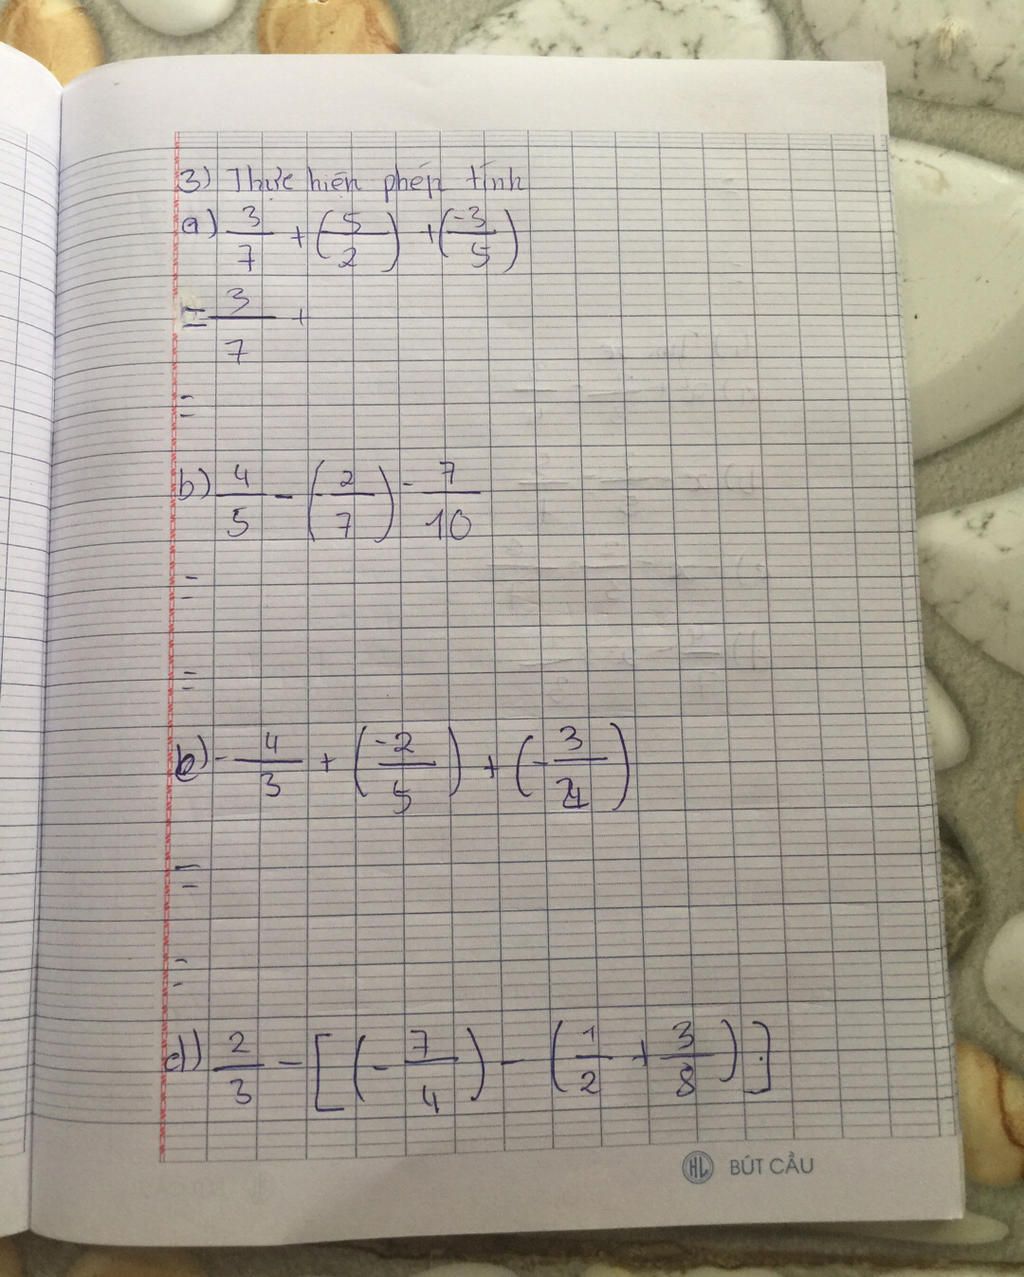 3) Thực hiện phép tính
a) 3/7 + (5/2) + (-3/5)
= 3/7 +
=
b) 4/5 - (2/7) - 7/10
=
=
-4/3 + (-2/5) + (-3/2)
=
=
d) 2/3 - [(-7/4) - (1/2 + 3/8)]
HL BÚT CẦU